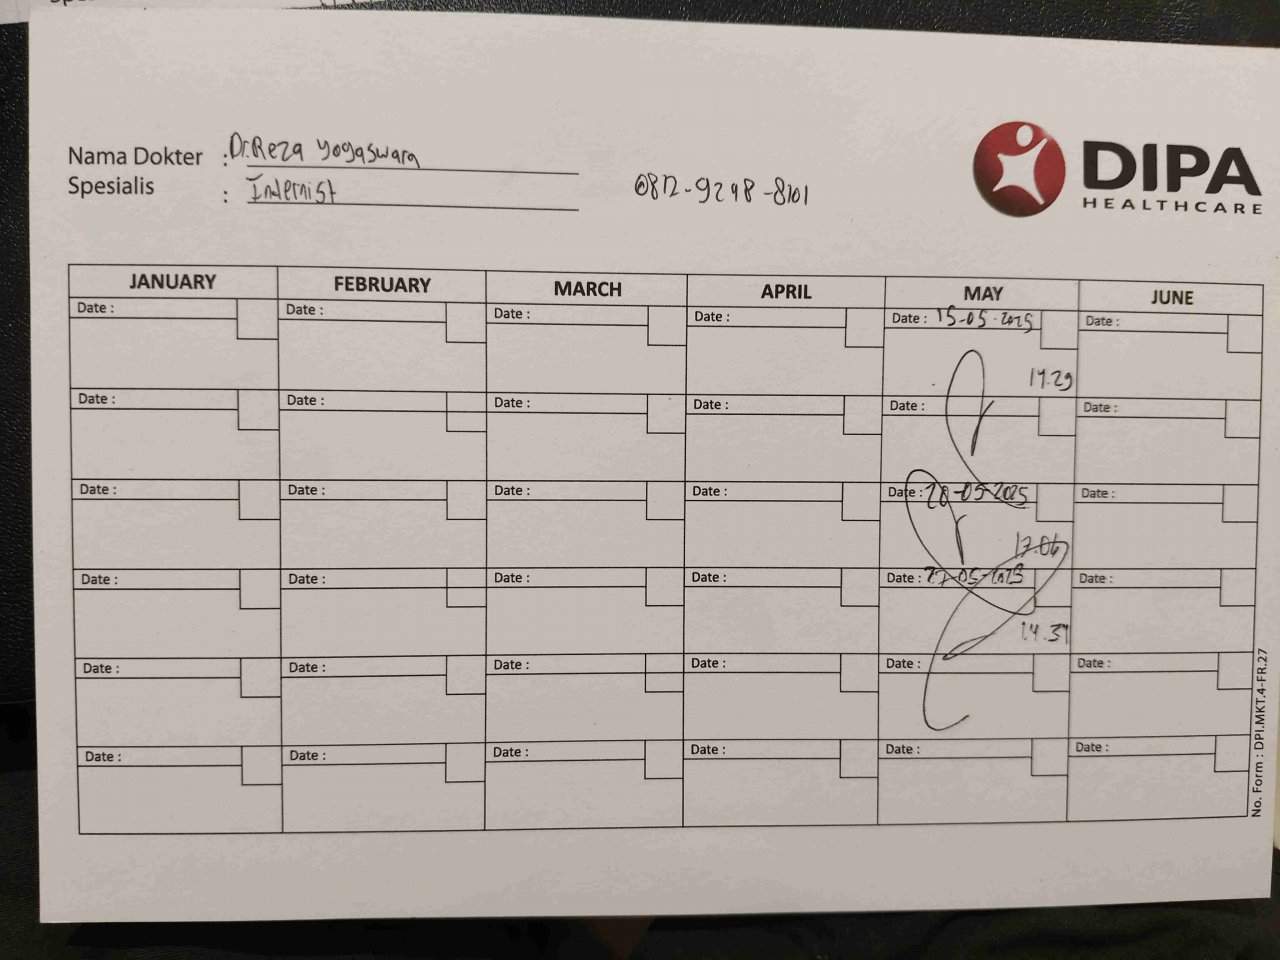 Nama Dokter : Dr. Reza Yogaswara
Spesialis : Internist
0812-9298-8101
DIPA
HEALTHCARE
JANUARY FEBRUARY MARCH APRIL MAY JUNE
Date : Date : Date : Date : Date : 15-05-2025 Date :
Date : Date : Date : Date : Date : Date :
Date : Date : Date : Date : Date : 20-05-2025 Date :
17.06
Date : Date : Date : Date : Date : 27-05-2025 Date :
Date : Date : Date : Date : Date : Date :
Date : Date : Date : Date : Date : Date :
No. Form : DPI.MKT.4-FR.27